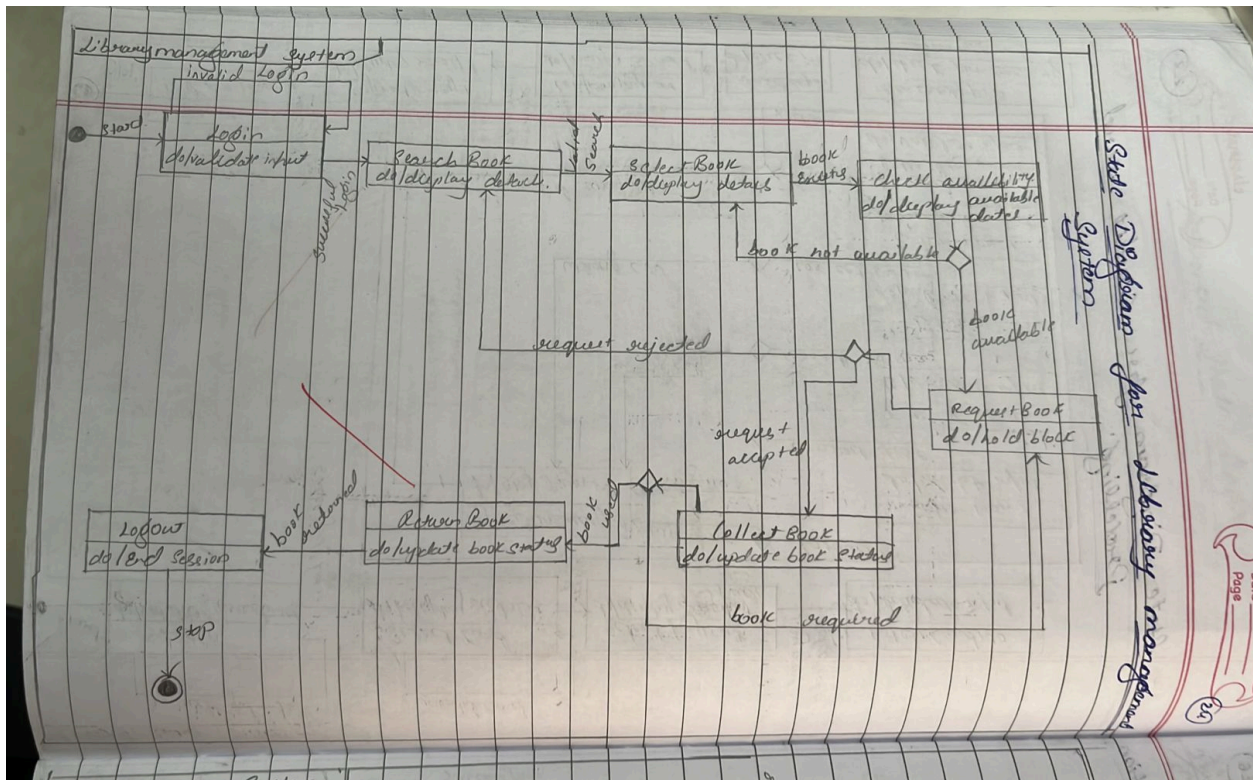 State Diagram for Library mangement
System
Library management System
invalid Login
start
Login
do/validate input
successful
login
Search Book
do/display details.
Valid
Search
Select Book
do/display details
book
exists
check availability
do/display available
dates.
book not available
book
available
request rejected
Request Book
do/hold block
request
accepted
Collect Book
do/update book status
book
used
book required
Return Book
do/update book status
book
returned
Logout
do/End session
stop
Page
24